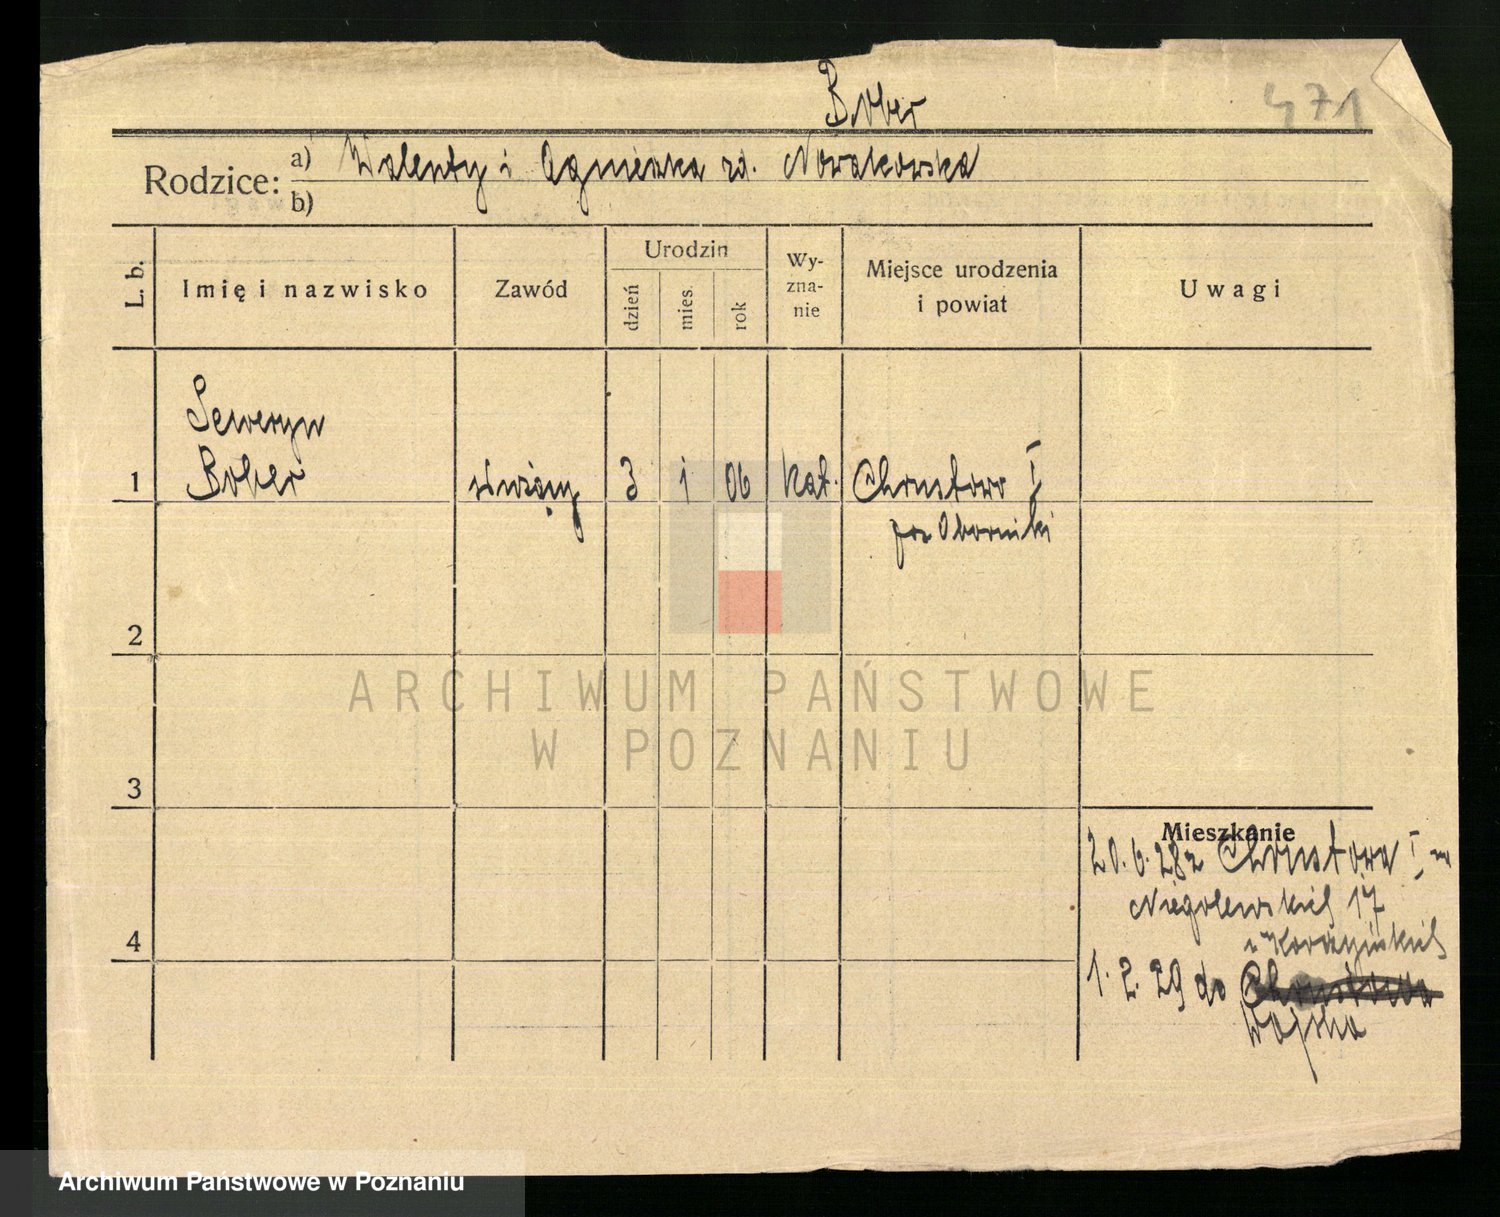 Bober
471
Rodzice: a) Walenty i Agnieszka zd. Nowakowska
b)
L. b.
Imię i nazwisko
Zawód
Urodzin
dzień
mies.
rok
Wy-
zna-
nie
Miejsce urodzenia
i powiat
Uwagi
Seweryn
1 Bober służący 3 1 06 kat. Chrustowo I
pow Oborniki
2
ARCHIWUM PAŃSTWOWE
W POZNANIU
3
Mieszkanie
20.6.28 z Chrustowa I na
Niegolewskich 17
4
1.2.29 do Chrustowa
Wojska
Archiwum Państwowe w Poznaniu